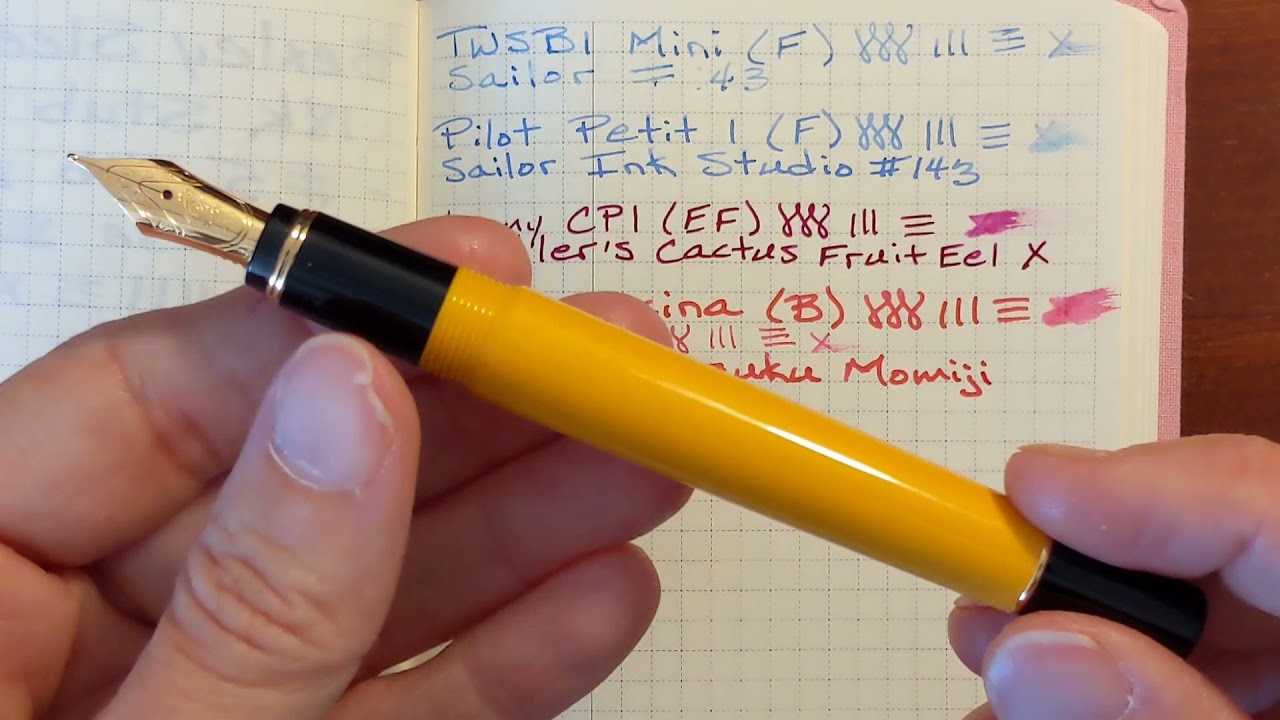 TWSBI Mini (F) III X
Sailor 43
Pilot Petit 1 (F) III X
Sailor Ink Studio #143
ny CP1 (EF) III
ler's Cactus Fruit Eel X
ina (B) III
III X
uku Momiji